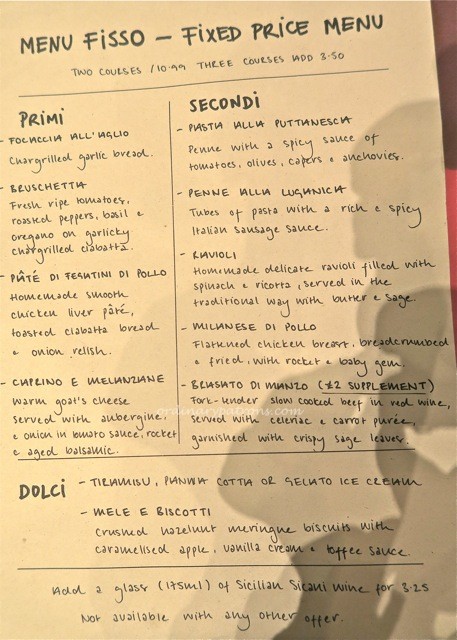 MENU FISSO – FIXED PRICE MENU
TWO COURSES /10.99 THREE COURSES ADD 3.50
PRIMI
- FOCACCIA ALL'AGLIO
Chargrilled garlic bread.
- BRUSCHETTA
Fresh ripe tomatoes,
roasted peppers, basil e
oregano on garlicky
chargrilled ciabatta.
- PÂTÉ DI FEGATINI DI POLLO
Homemade smooth
chicken liver pâté,
toasted ciabatta bread
e onion relish.
- CAPRINO E MELANZANE
Warm goat's cheese
served with aubergine
e onion in tomato sauce, rocket
e aged balsamic.
SECONDI
- PASTA ALLA PUTTANESCA
Penne with a spicy sauce of
tomatoes, olives, capers e anchovies.
- PENNE ALLA LUGANICA
Tubes of pasta with a rich e spicy
Italian sausage sauce.
- RAVIOLI
Homemade delicate ravioli filled with
spinach e ricotta, served in the
traditional way with butter e sage.
- MILANESE DI POLLO
Flattened chicken breast, breadcrumbed
e fried, with rocket e baby gem.
- BRASATO DI MANZO (£2 SUPPLEMENT)
Fork-tender slow cooked beef in red wine,
served with celeriac e carrot purée,
garnished with crispy sage leaves.
ordinarypatrons.com
DOLCI - TIRAMISU, PANNA COTTA OR GELATO ICE CREAM
- MELE E BISCOTTI
Crushed hazelnut meringue biscuits with
caramelised apple, vanilla cream e toffee sauce.
Add a glass (175ml) of Sicilian Sicani wine for 3.25
Not available with any other offer.